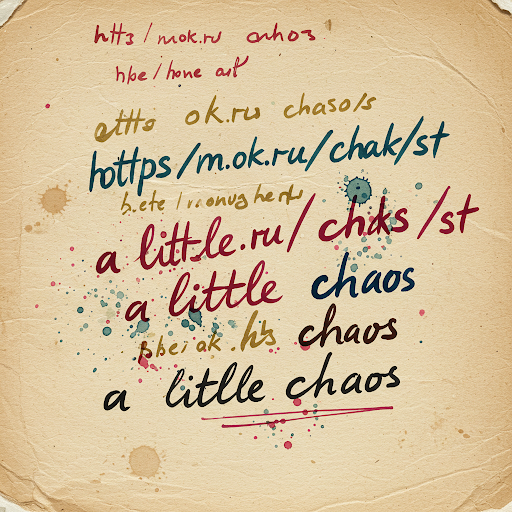 htts / mok.ru ahos
hbe / hone art
ettts ok.ru chaso/s
hottps/m.ok.ru/chak/st
b.ete /
a little.ru/chks/st
a little chaos
bbei ak .hts chaos
a litlle chaos